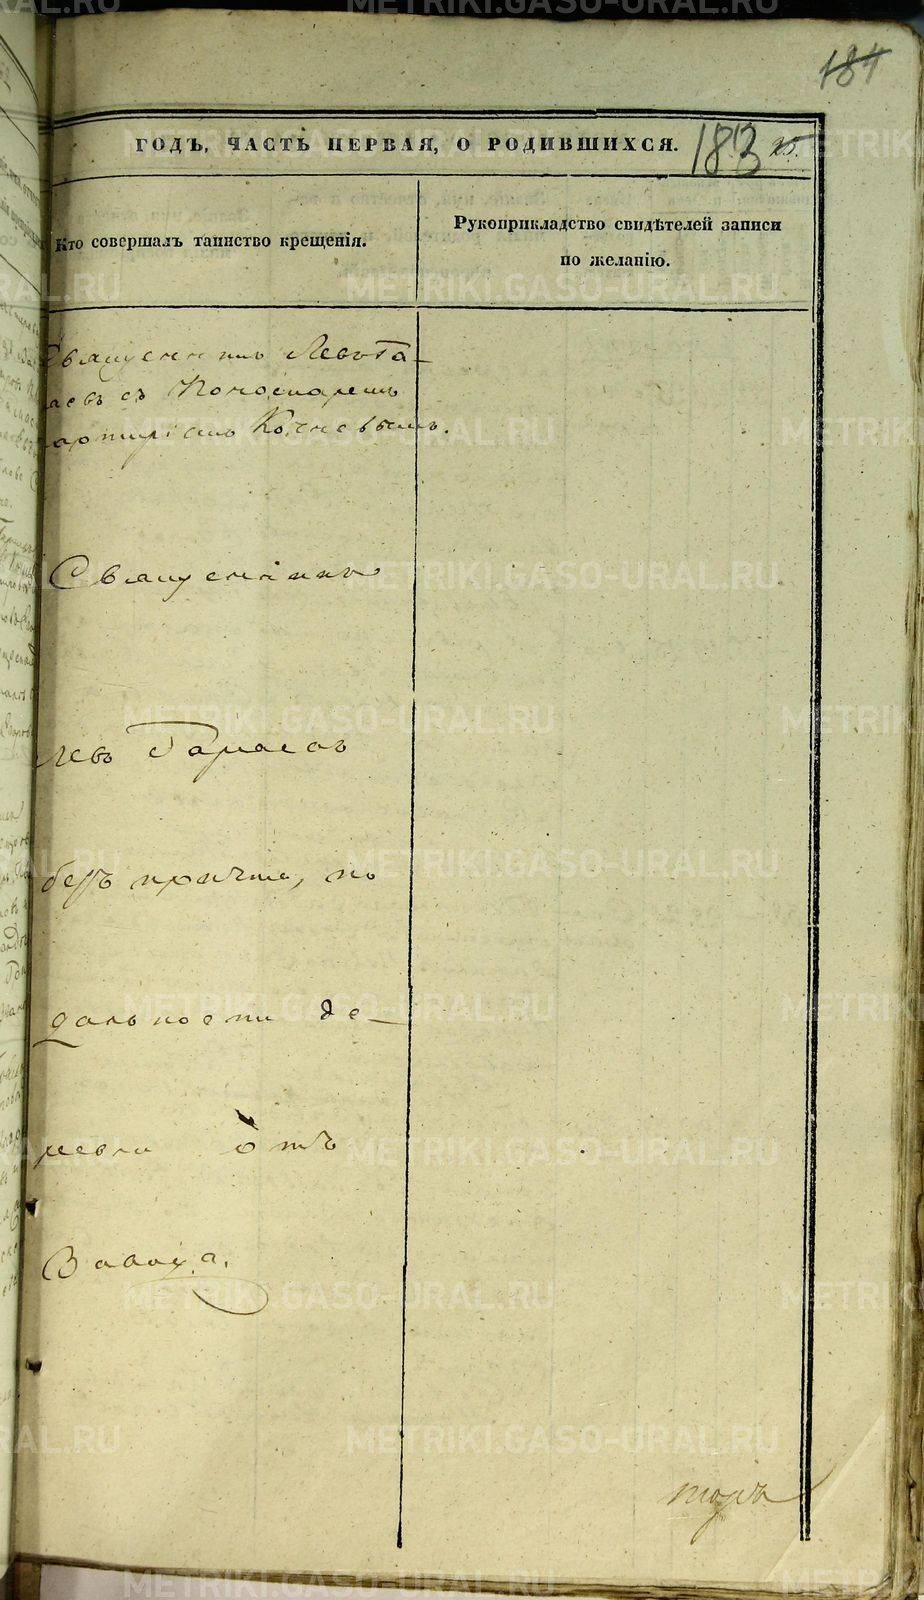 184
ГОДЪ, ЧАСТЬ ПЕРВАЯ, О РОДИВШИХСЯ. 183 25.
Кто совершалъ таинство крещенія.
Рукоприкладство свидѣтелей записи
по желанію.
Священникъ Левъ Га-
съ Пономаремъ
Священникъ
Левъ Гарасовъ
безъ причта, по
дальности де-
ревни отъ
Завода.
METRIKI.GASO-URAL.RU